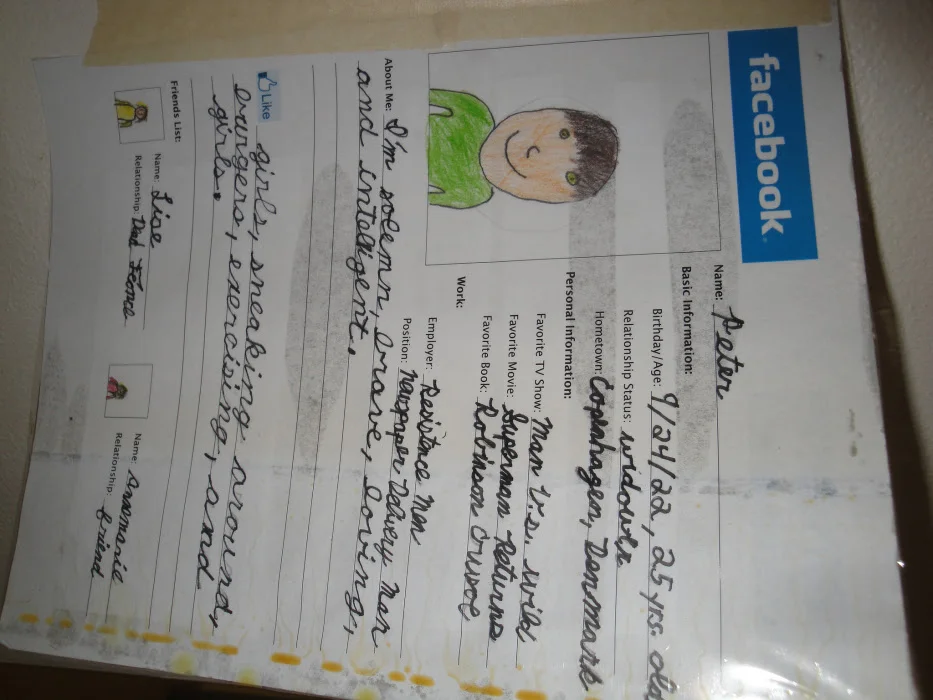 facebook
Name: Peter
Basic Information:
Birthday/Age: 9/24/22, 25 yrs. old
Relationship Status: widower
Hometown: Copenhagen, Denmark
Personal Information:
Favorite TV Show: Man v.s. wild
Favorite Movie: Superman Returns
Favorite Book: Robinson Crusoe
Work:
Employer: Resistence Men
Position: Newspaper Delivery Man
About Me: I'm solemn, brave, loving,
and intelligent.
Like girls, sneaking around,
burgers, exercising, and
girls.
Friends List:
Name: Lise
Relationship: Dead Feonce
Name: Annmarie
Relationship: friend